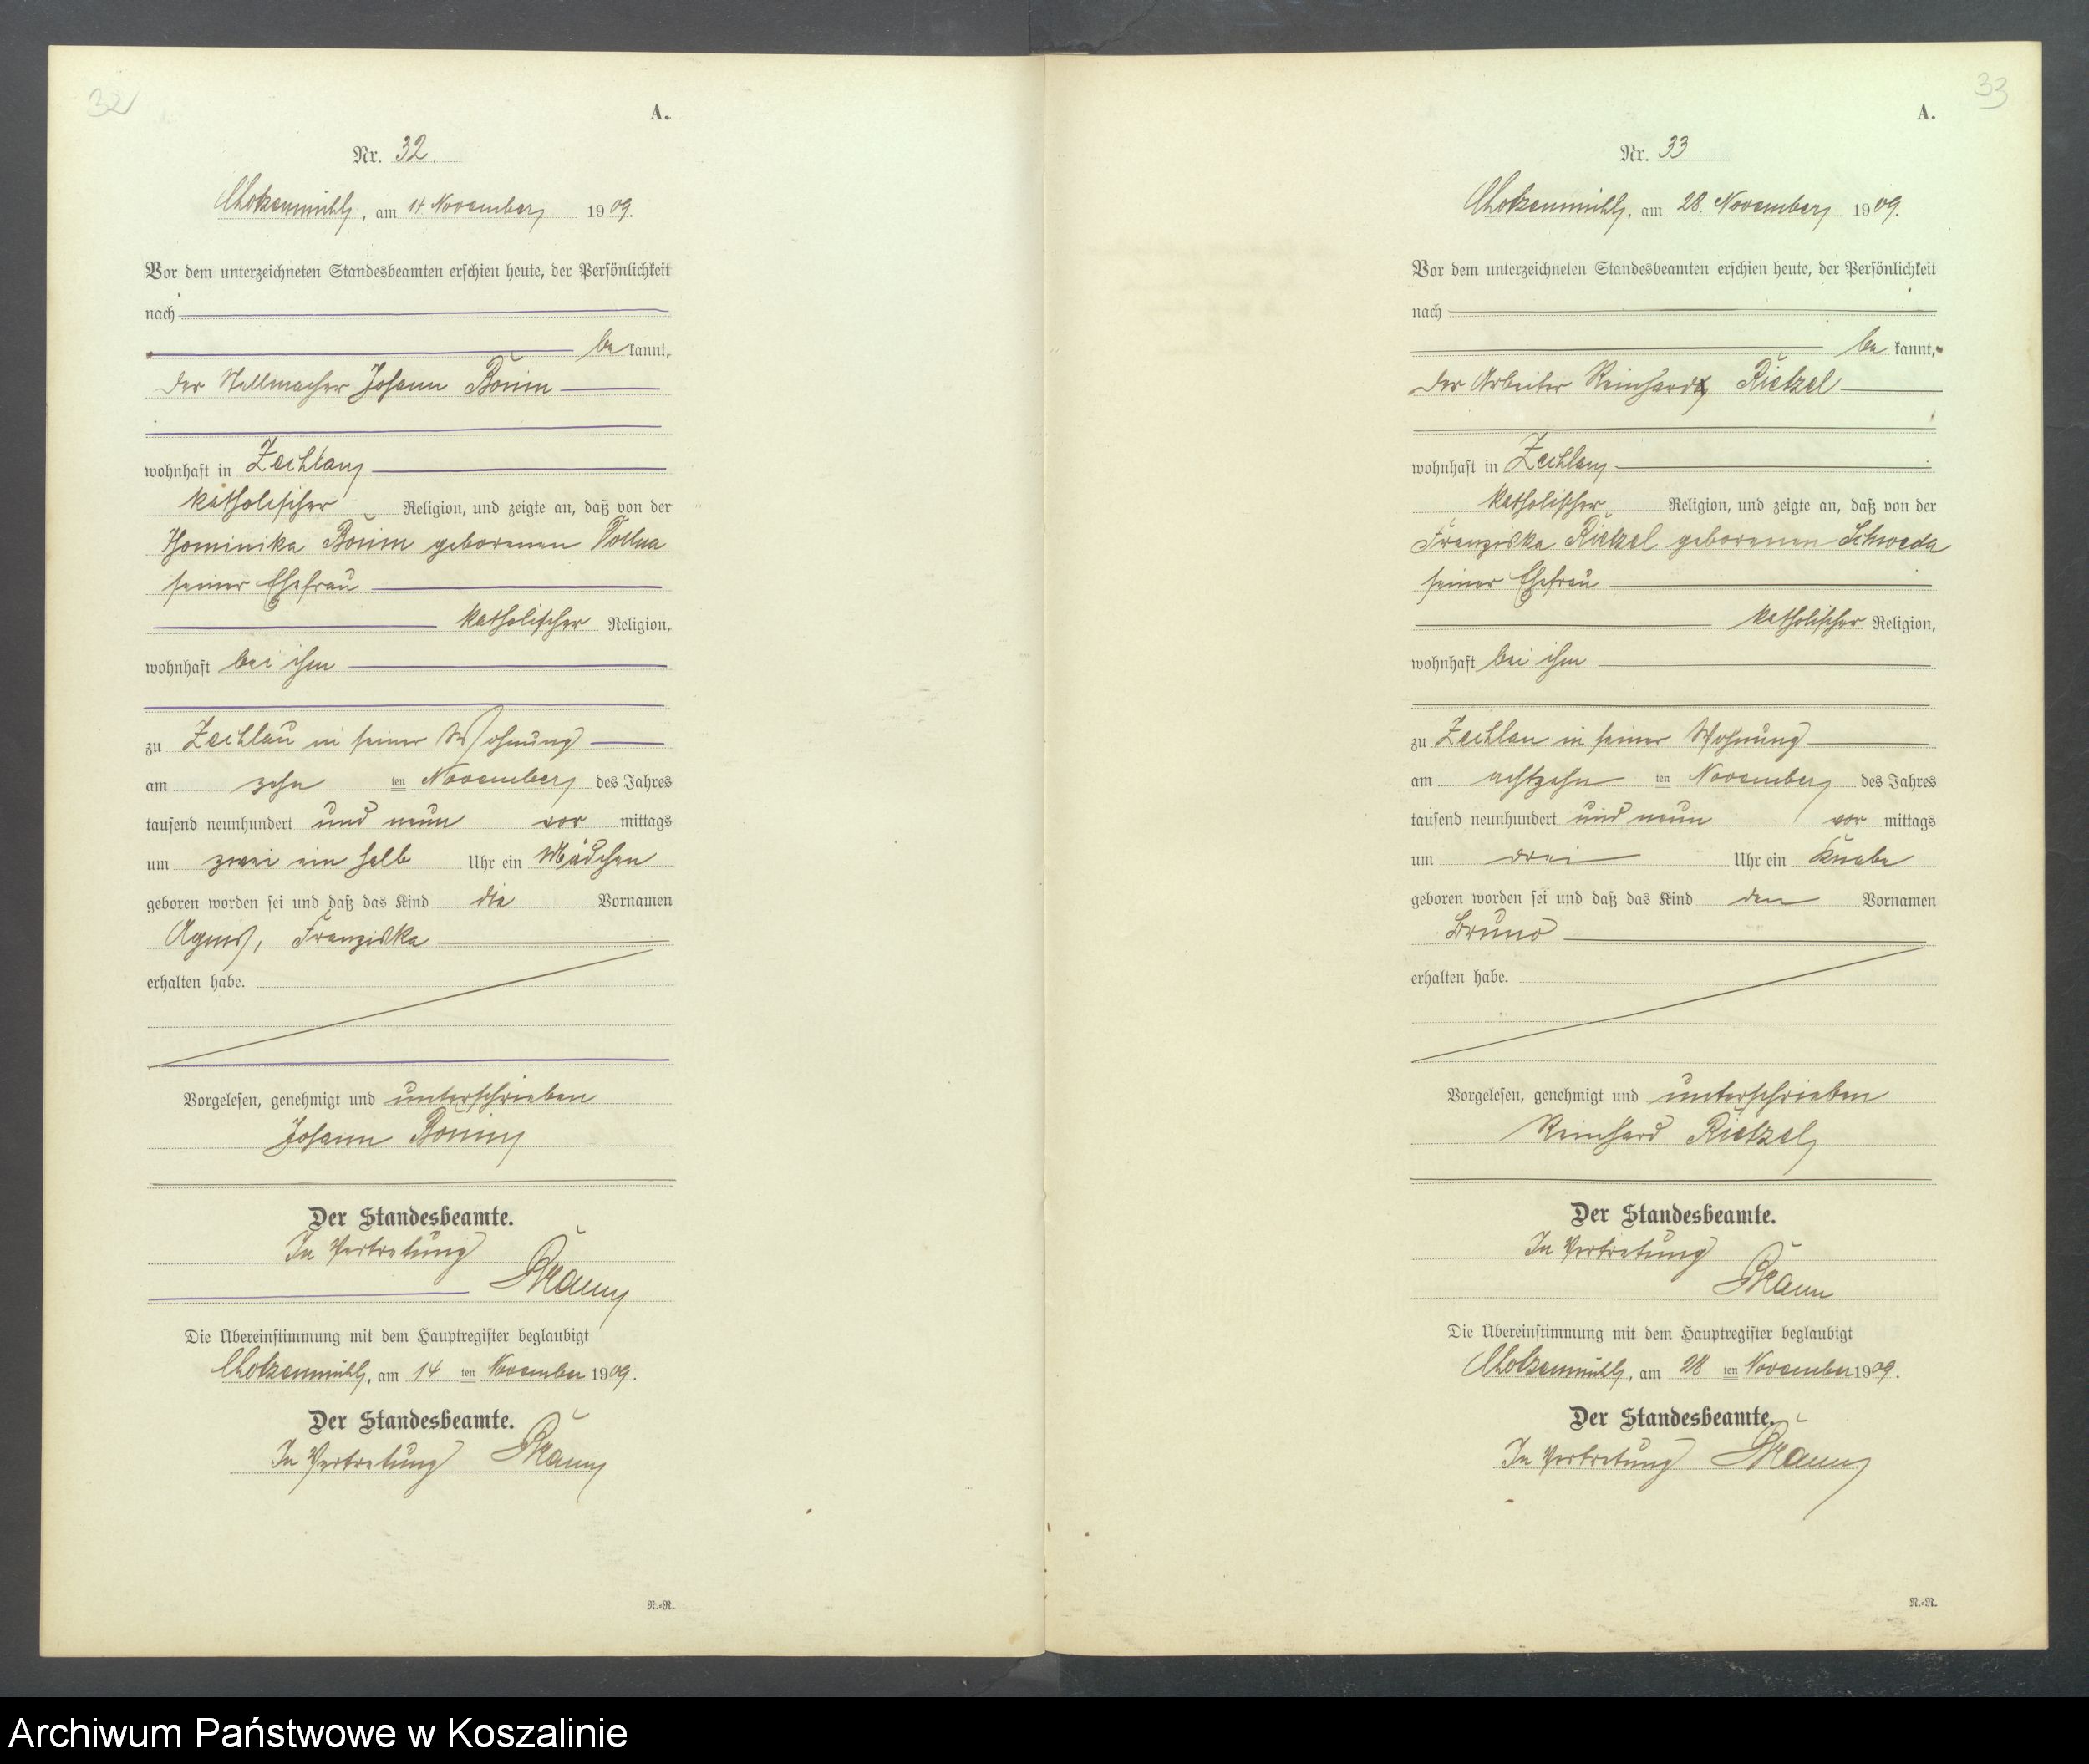 32
A.
Nr. 32.
Chotzenmühl, am 14 November 1909.
Vor dem unterzeichneten Standesbeamten erschien heute, der Persönlichkeit
nach
be kannt,
der Stellmacher Johann
wohnhaft in Zechlau
katholischer Religion, und zeigte an, daß von der
geborenen
seiner Ehefrau
katholischer Religion,
wohnhaft bei ihm
zu Zechlau in seiner Wohnung
am zehn ten November des Jahres
tausend neunhundert und neun vor mittags
um zwei ein halb Uhr ein Mädchen
geboren worden sei und daß das Kind die Vornamen
Agnes, Franziska
erhalten habe.
Vorgelesen, genehmigt und unterschrieben
Johann
Der Standesbeamte.
In Vertretung
Die Übereinstimmung mit dem Hauptregister beglaubigt
Chotzenmühl, am 14 ten November 1909.
Der Standesbeamte.
In Vertretung
N.-N.
33
A.
Nr. 33
Chotzenmühl, am 28. November 1909.
Vor dem unterzeichneten Standesbeamten erschien heute, der Persönlichkeit
nach
be kannt,
der Arbeiter Reinhard Rietzel
wohnhaft in Zechlau
katholischer Religion, und zeigte an, daß von der
Franziska Rietzel geborenen Schweda
seiner Ehefrau
katholischer Religion,
wohnhaft bei ihm
zu Zechlau in seiner Wohnung
am achtzehn ten November des Jahres
tausend neunhundert und neun vor mittags
um drei Uhr ein Knabe
geboren worden sei und daß das Kind den Vornamen
Bruno
erhalten habe.
Vorgelesen, genehmigt und unterschrieben
Reinhard Rietzel
Der Standesbeamte.
In Vertretung
Die Übereinstimmung mit dem Hauptregister beglaubigt
Chotzenmühl, am 28 ten November 1909.
Der Standesbeamte.
In Vertretung
N.-N.
Archiwum Państwowe w Koszalinie